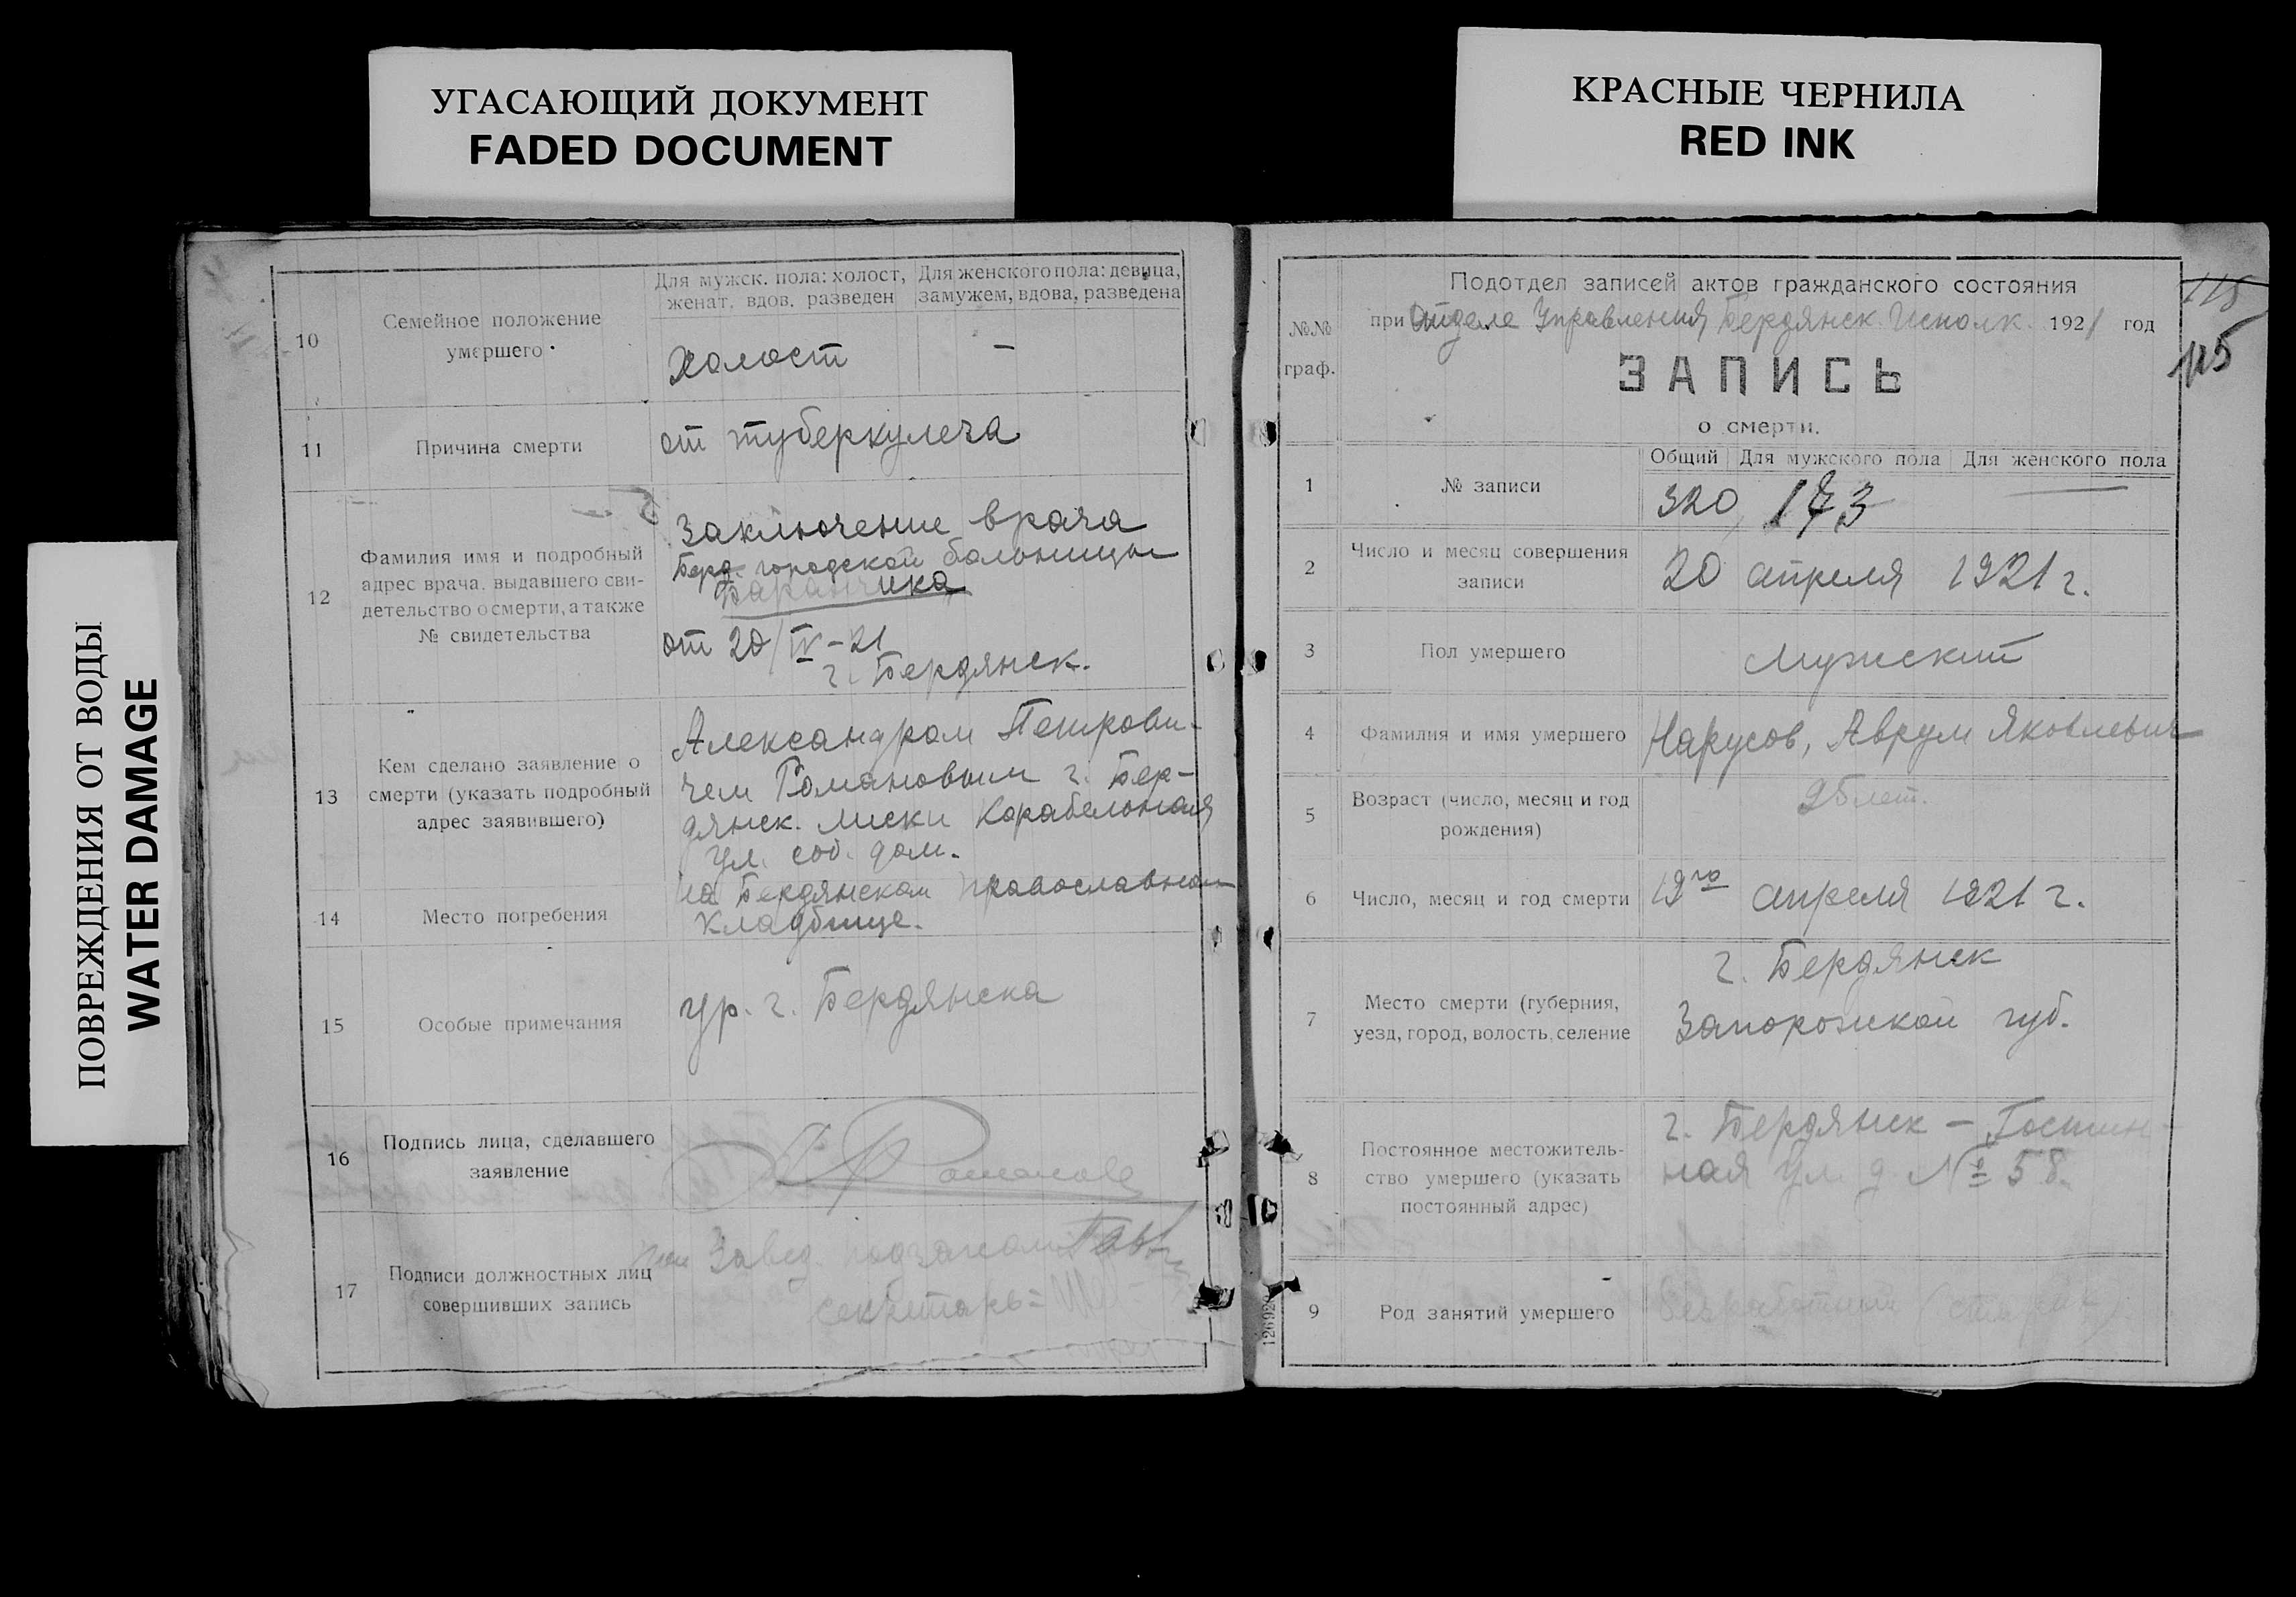 УГАСАЮЩИЙ ДОКУМЕНТ
FADED DOCUMENT
КРАСНЫЕ ЧЕРНИЛА
RED INK
ПОВРЕЖДЕНИЯ ОТ ВОДЫ
WATER DAMAGE
10
Семейное положение
умершего
Для мужск. пола: холост,
женат, вдов, разведен
Для женского пола: девица,
замужем, вдова, разведена
Холост
—
11
Причина смерти
от туберкулеза
12
Фамилия имя и подробный
адрес врача, выдавшего сви-
детельство о смерти, а также
№ свидетельства
Заключение врача
Берд. городской больницы
Баранчика
от 20/IV-21
г. Бердянск.
13
Кем сделано заявление о
смерти (указать подробный
адрес заявившего)
Александром Петрови-
чем Романовым г. Бер-
дянск. Лиски Корабельная
ул. соб. дом.
14
Место погребения
на Бердянском православном
кладбище.
15
Особые примечания
ур. г. Бердянска
16
Подпись лица, сделавшего
заявление
А Романов
17
Подписи должностных лиц
совершивших запись
Завед. подзагсом
секретарь:
115
115
№.№
граф.
Подотдел записей актов гражданского состояния
при Отделе Управления Бердянск. Исполк. 1921 год
ЗАПИСЬ
о смерти.
1
№ записи
Общий Для мужского пола Для женского пола
320, 173 —
2
Число и месяц совершения
записи
20 апреля 1921 г.
3
Пол умершего
Мужский
4
Фамилия и имя умершего
Нарусов, Аврум Яковлевич
5
Возраст (число, месяц и год
рождения)
25 лет.
6
Число, месяц и год смерти
19го апреля 1921 г.
7
Место смерти (губерния,
уезд, город, волость, селение
г. Бердянск
Запорожской губ.
8
Постоянное местожитель-
ство умершего (указать
постоянный адрес)
г. Бердянск – Гостин-
ная ул. д № 58.
9
Род занятий умершего
безработный
126920